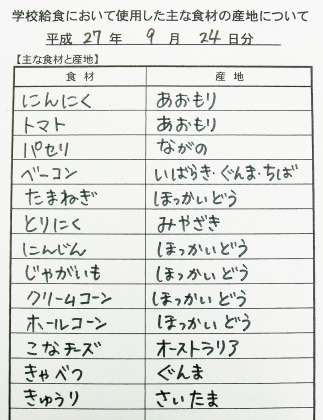 学校給食において使用した主な食材の産地について
平成 27 年 9 月 24 日分
【主な食材と産地】
食材 産地
にんにく あおもり
トマト あおもり
パセリ ながの
ベーコン いばらき・ぐんま・ちば
たまねぎ ほっかいどう
とりにく みやざき
にんじん ほっかいどう
じゃがいも ほっかいどう
クリームコーン ほっかいどう
ホールコーン ほっかいどう
こなチーズ オーストラリア
きゃべつ ぐんま
きゅうり さいたま